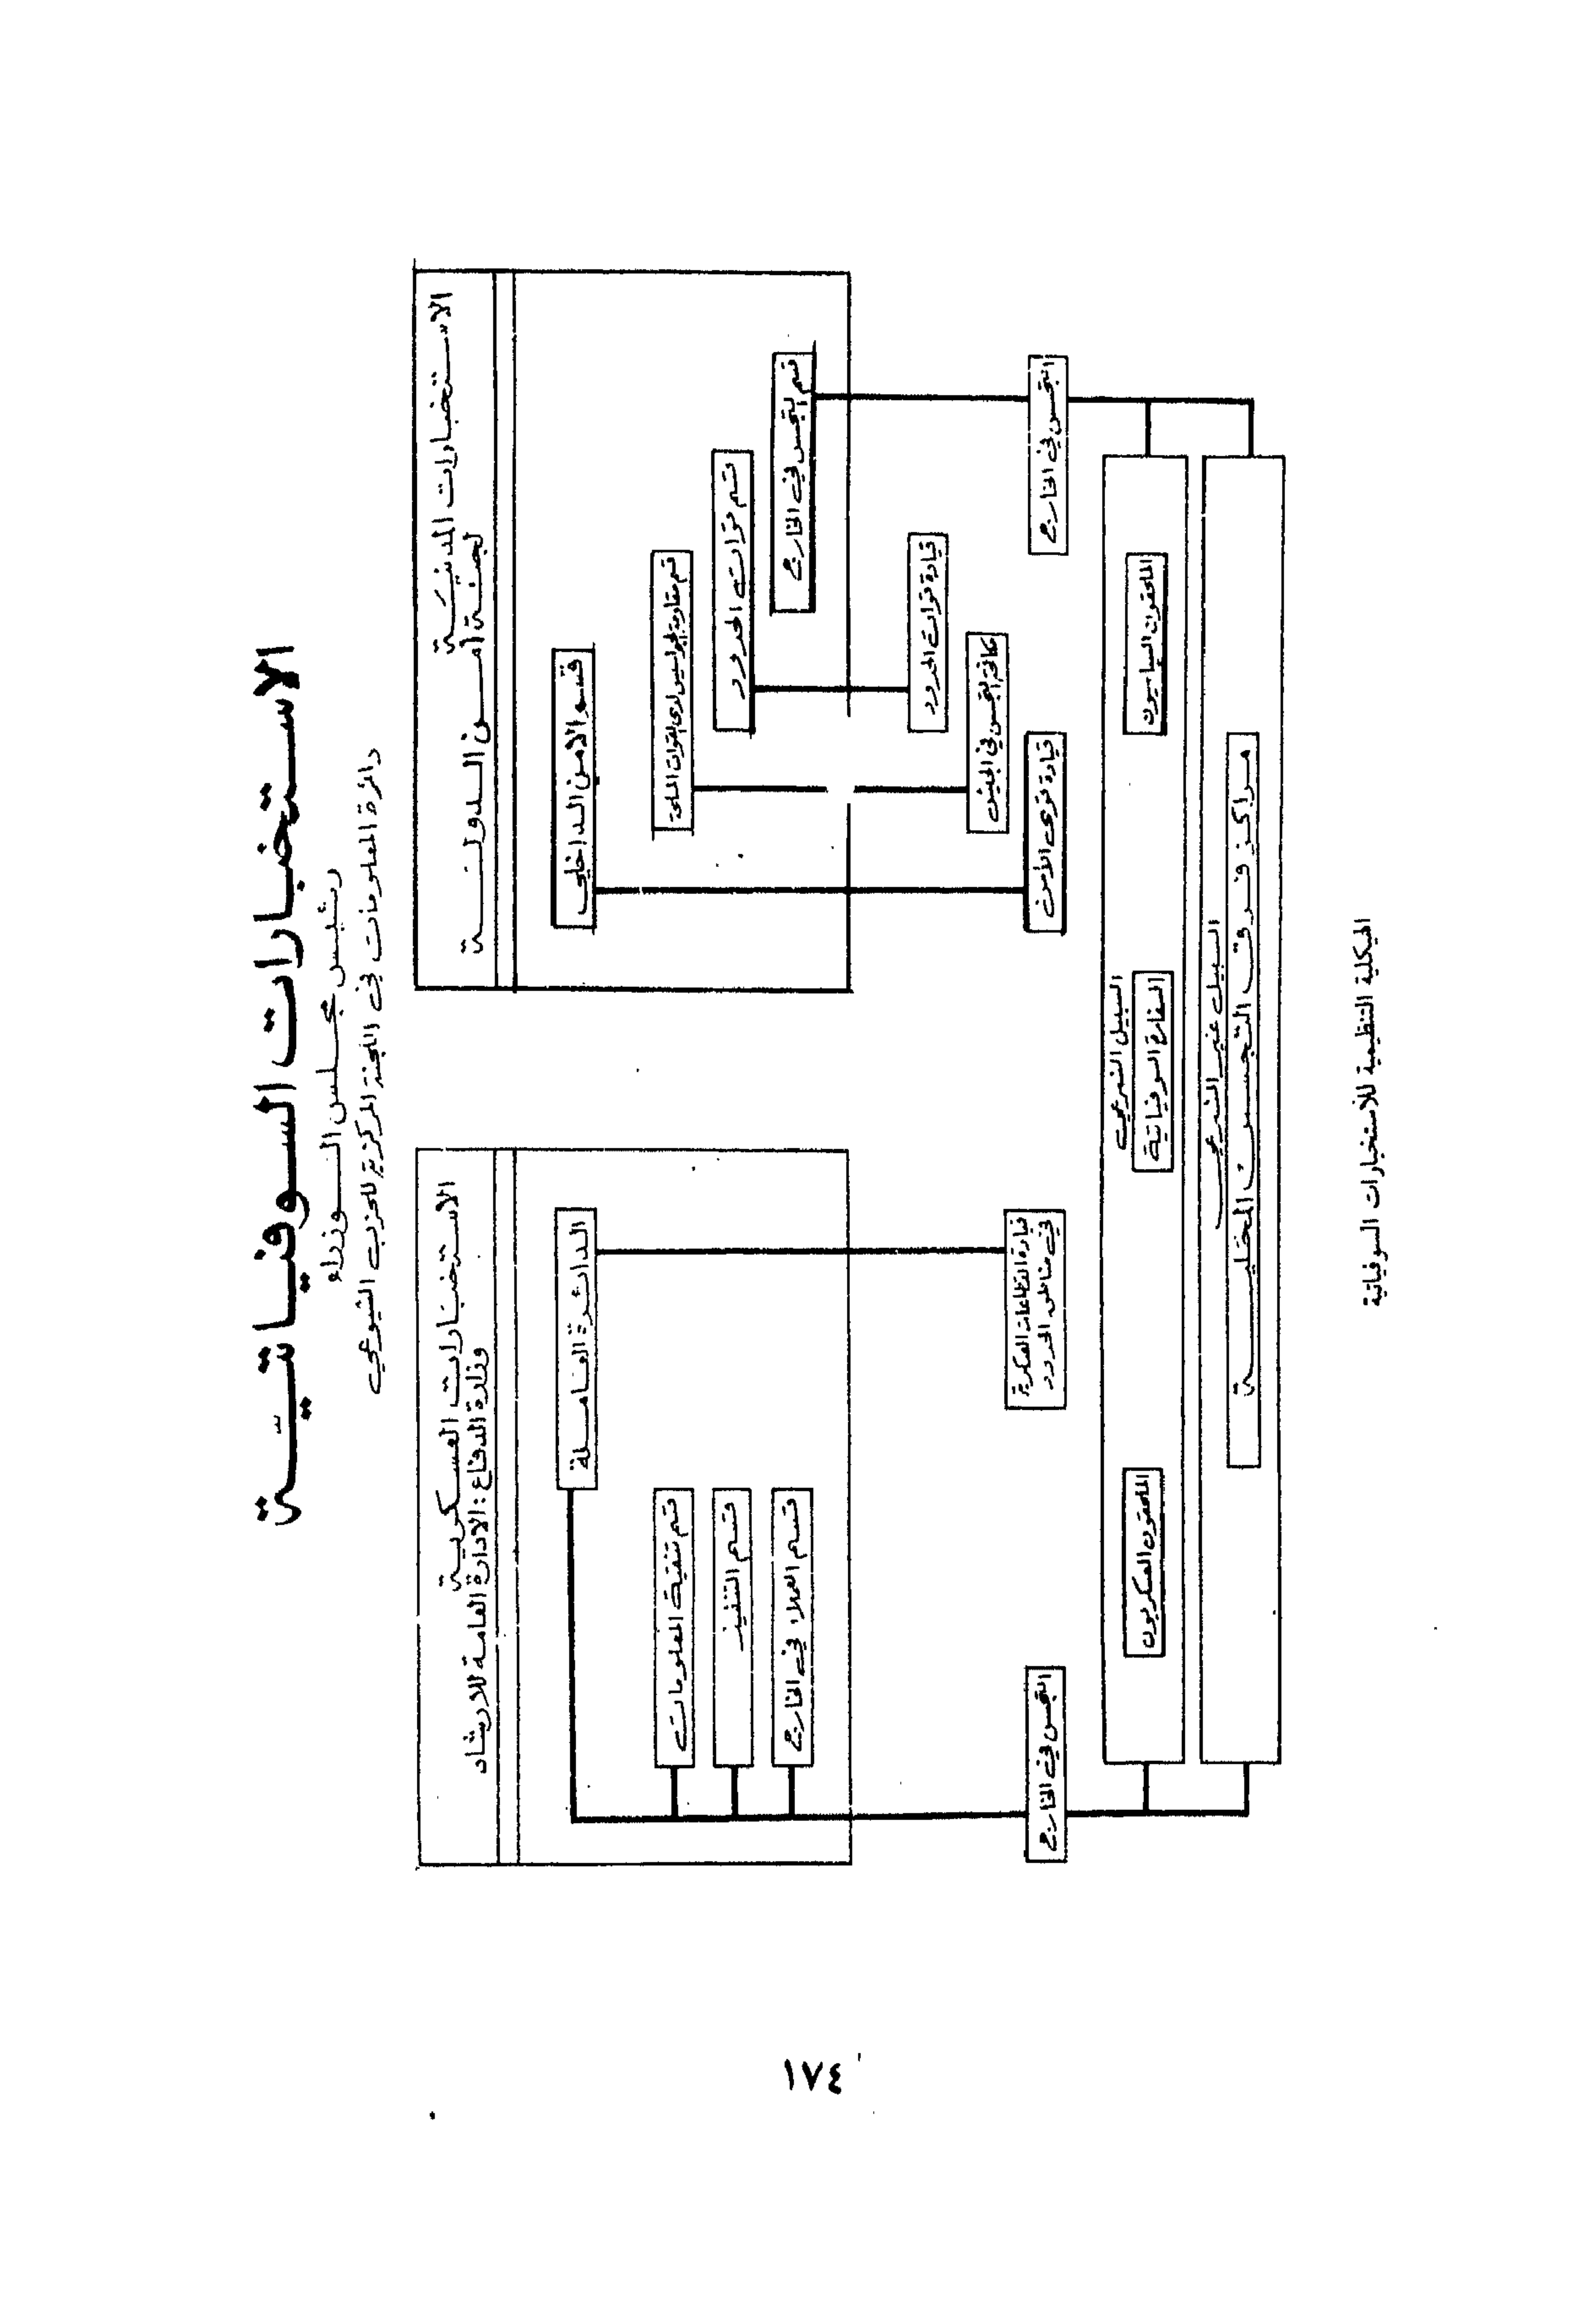 الاستخبارات السوفياتية
رئيس مجلس الوزراء
دائرة المعلومات في اللجنة المركزية للحزب الشيوعي
الاستخبارات المدنية
لجنة أمن الدولة
قسم الامن الداخلي
قسم مقاومة الجواسيس لدى القوات المسلحة
قسم قوات الحدود
قسم التجسس في الخارج
قيادة قوات الحدود
مكافحة التجسس في الجيش
قيادة قوى الأمن
التجسس في الخارج
الاستخبارات العسكرية
وزارة الدفاع : الادارة العامة للارشاد
الدائرة العاملة
قسم تنقية المعلومات
قسم التنفيذ
قسم العملاء في الخارج
قيادة القطاعات العسكرية
في مناطق الحدود
التجسس في الخارج
السبيل الشرعي
الملحقون السياسيون
السفارة السوفياتية
الملحقون العسكريون
السبيل غير الشرعي
مراكز فرق التجسس المحلية
الهيكلية التنظيمية للأستخبارات السوفياتية
١٧٤